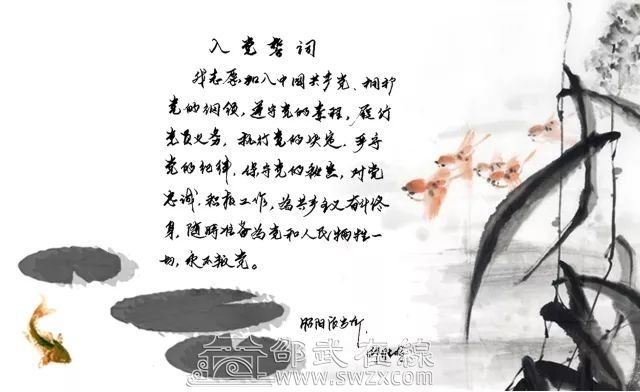 入党誓词
我志愿加入中国共产党，拥护
党的纲领，遵守党的章程，履行
党员义务，执行党的决定，严守
党的纪律，保守党的秘密，对党
忠诚，积极工作，为共产主义奋斗终
身，随时准备为党和人民牺牲一
切，永不叛党。
昭阳派出所
邵武在線
www.swzx.com